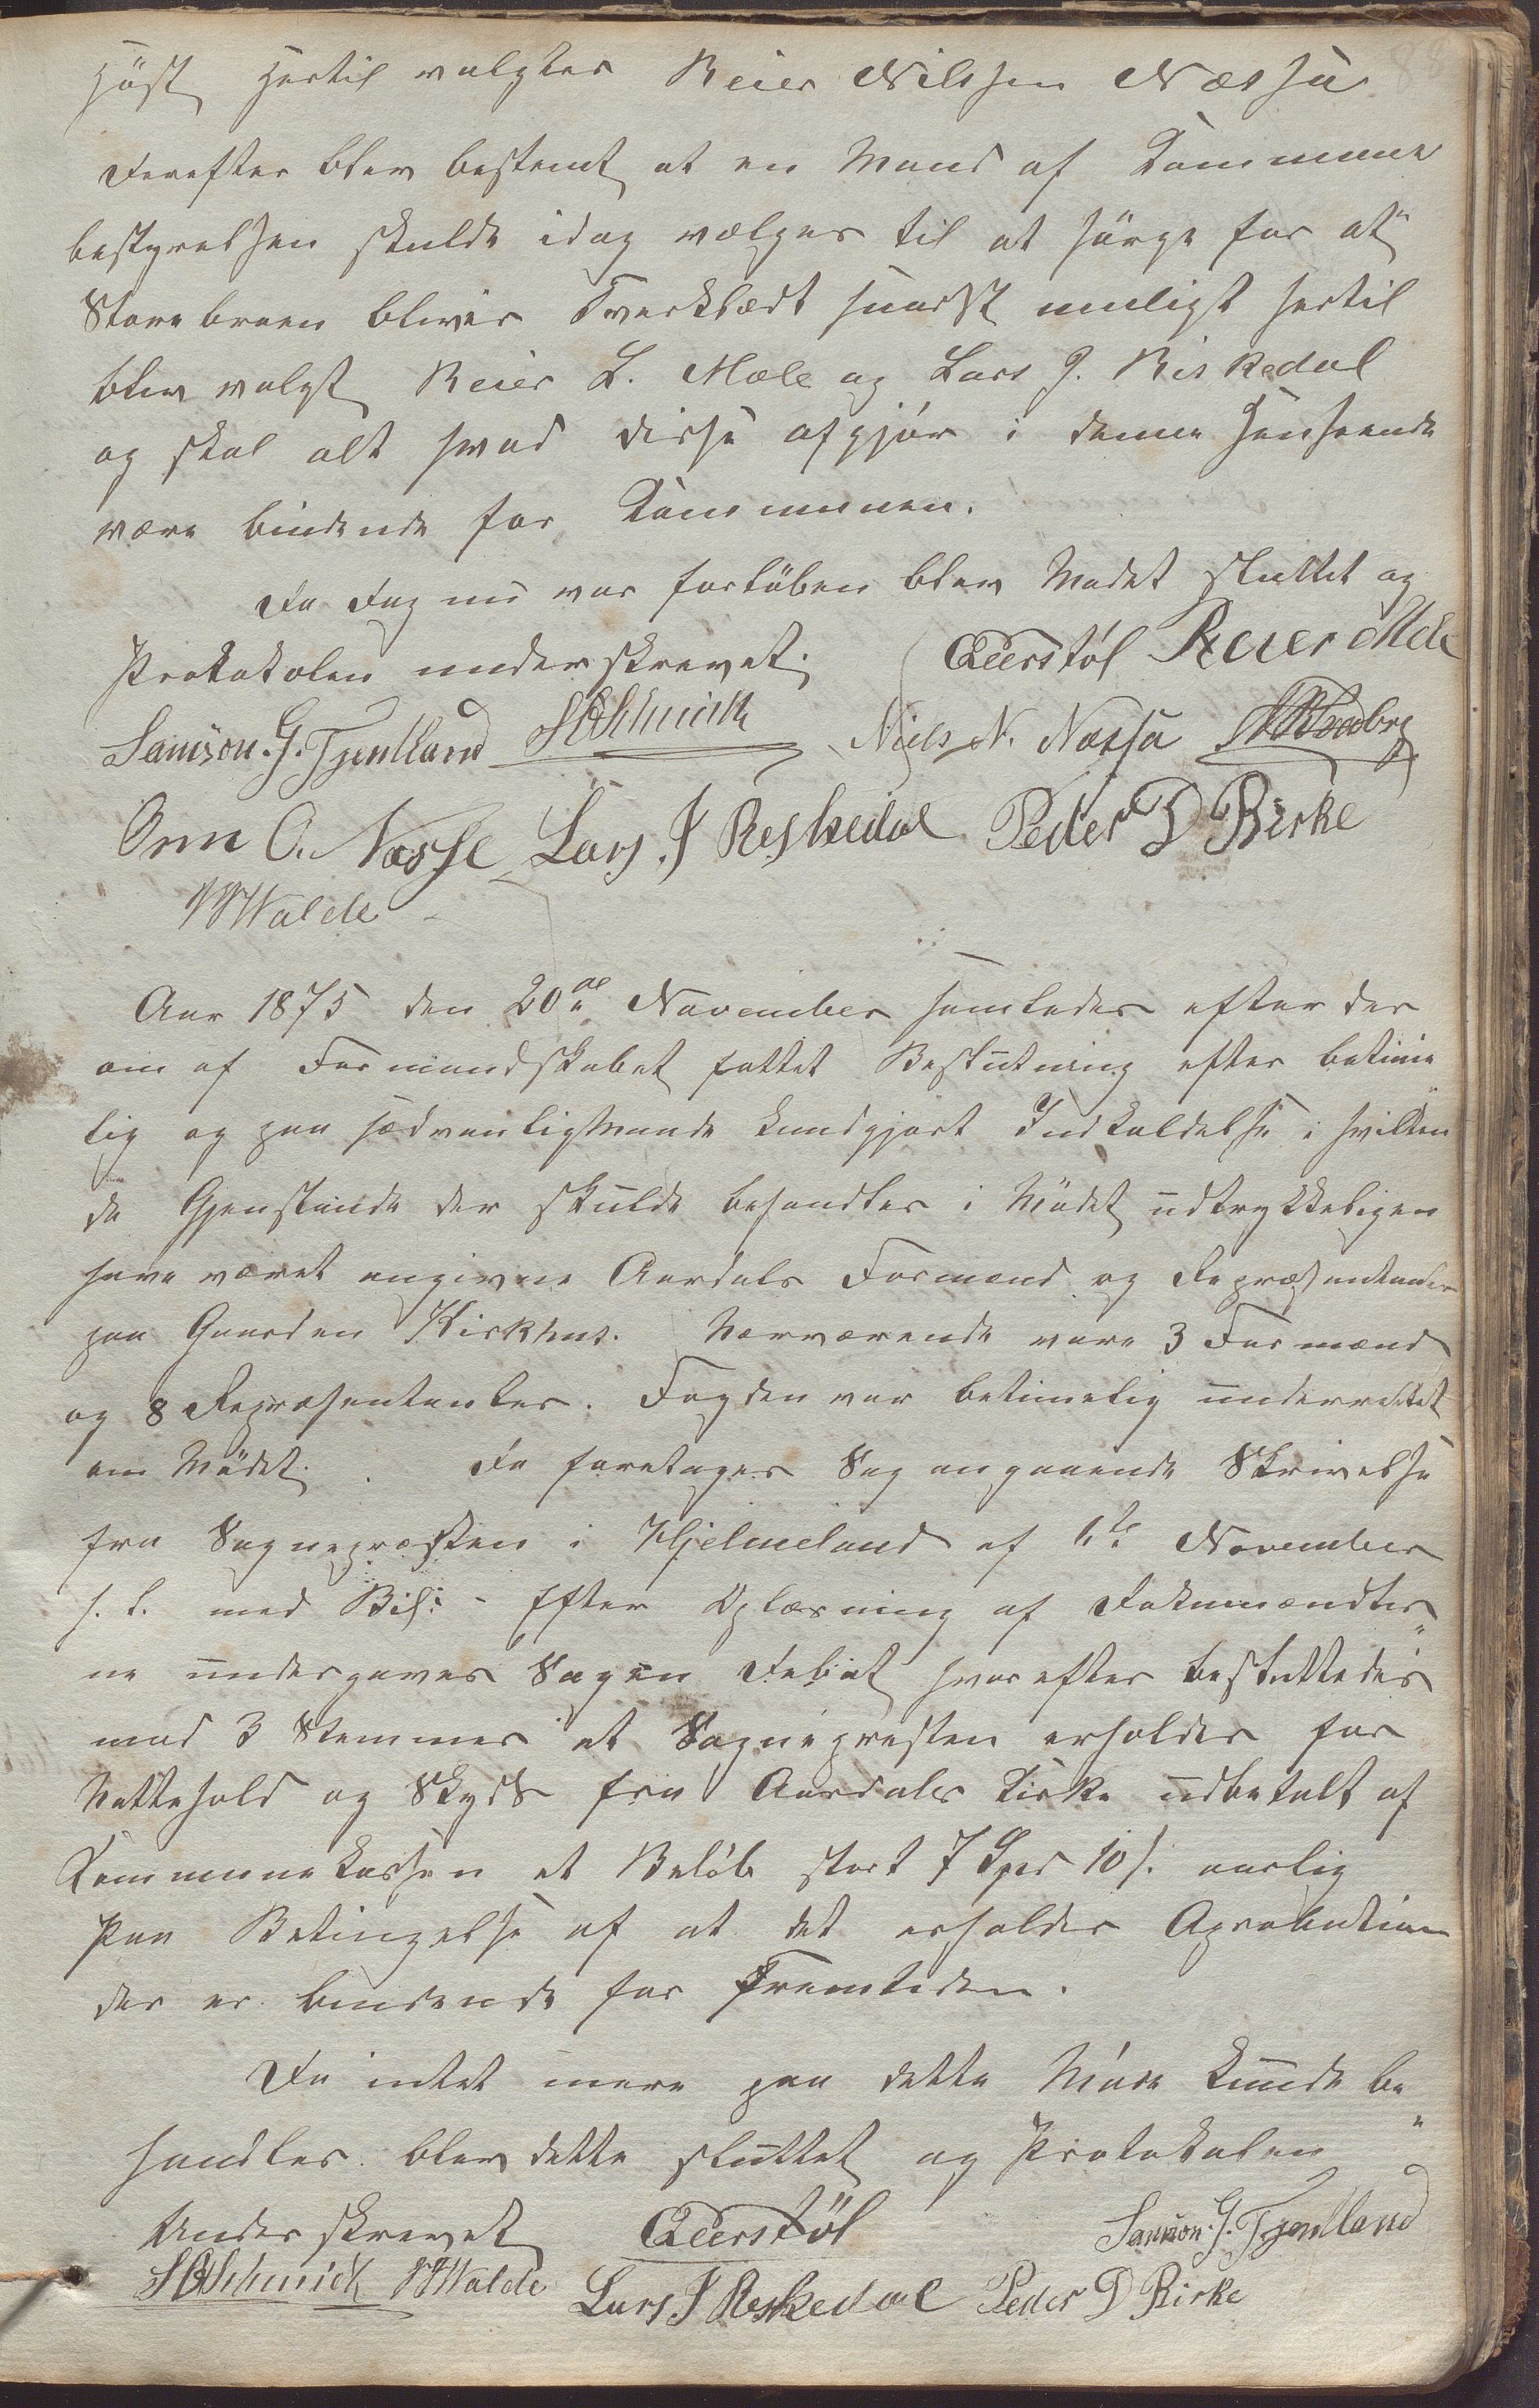 Höst, hertil valgtes Reier Nilssen Næssa
Derefter blev bestemt at en Mand af Kommune
bestyrelsen skulde idag vælges til at sörge for at
Storebroen bliver Tverklædt snarest muligt hertil
blev valgt Reier L. Mæle og Lars J. Riskedal
og skal alt hvad disse afgjör i denne Henseende
være bindende for Kommunen.
Da Dag nu var forløben blev Mødet sluttet og
Protokolen underskrevet.
Qverstøl Reier Mele
Samson. G. Tjentland S B Schmidt Niels N. Næssa
Onn O. Næsse Lars. J Reskedal Peder D Birke
Walde
Aar 1875 den 20de November samledes efter der
om af Formandskabet fattet Beslutning efter betime
lig og paa sædvanligMaade kundgjort Indkaldelse i hvilken
de Gjenstande der skulde behandles i Mödet udtrykkeligen
have været angivne Aardals Formænd og Repræsentanter
paa Gaarden Kirkhus. Nærværende vare 3 Formænd
og 8 Repræsentanter. Fogden var betimelig underrettet
om Mödet. Da foretages Sag angaaende Skrivelse
fra Sognepræsten i Hjelmeland af 6te November
h. t. med Bil: - Efter Oplæsning af Dokumændter"
ne undergaves Sagen Debat hvorefter besluttedes
mod 3 Stemmer at Sognepresten erholder for
Nattehold og Skyds fra Aardals Kirke udbetalt af
Kommunekassen et Beløb stort 7 Spd 10 s. aarlig
Paa Betingelse af at det erholder Aprobation
der er bindende for Fremtiden.
Da intet mere paa dette Möde kunde be"
handles blev dette sluttet og Protokolen
Underskrevet Qverstöl Samson. G. Tjentland
S B Schmidt Walde Lars J Reskedal Peder D Birke